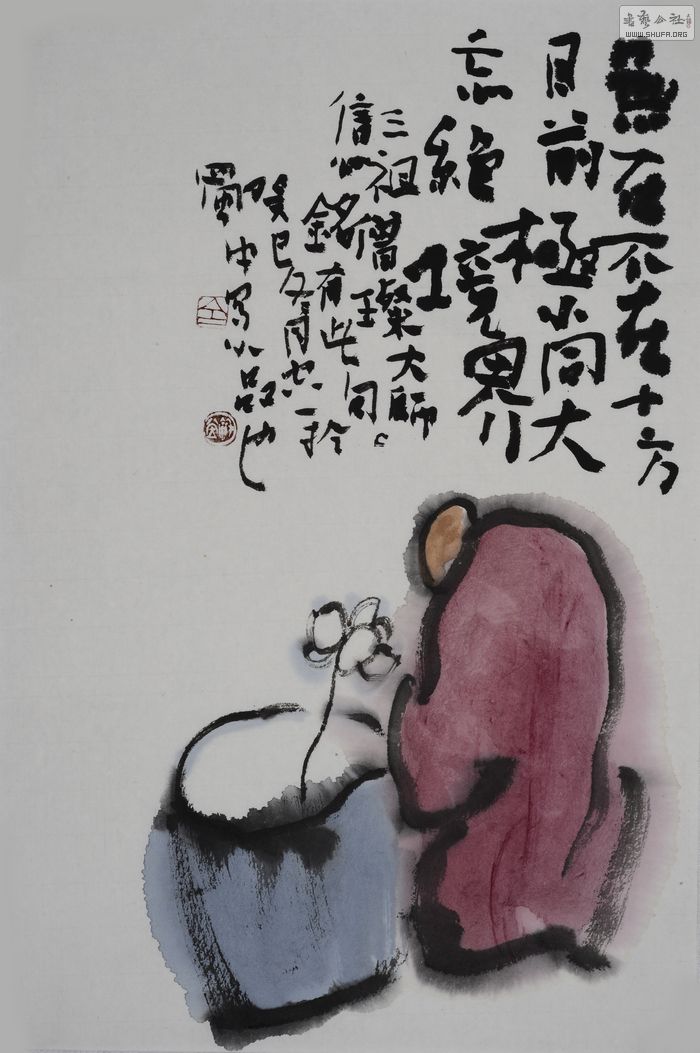 無在不在十方
目前極小同大
忘絶境界
三祖僧璨大師
信心銘有此句。
癸巳冬月忠一於
蜀中写小品也
書藝公社
WWW.SHUFA.ORG